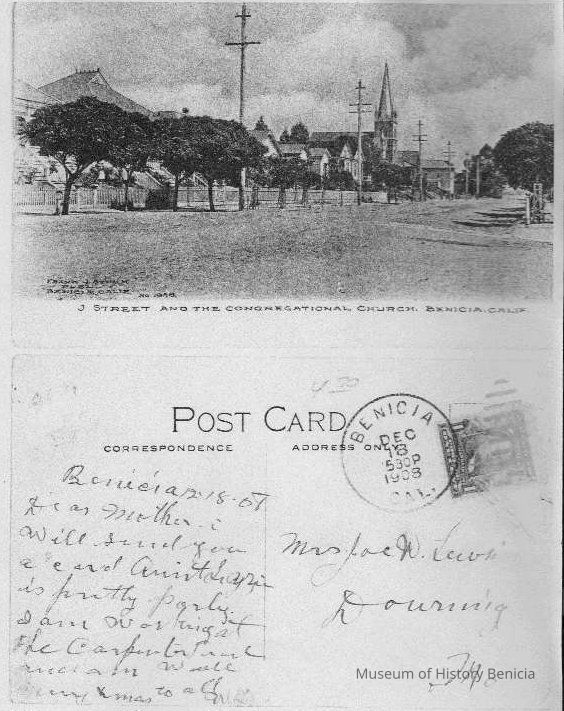 FRANK J. STUMM
PUBL.
BENICIA, CALIF.
NO. 
J STREET AND THE CONGREGATIONAL CHURCH. BENICIA, CALIF.
4 30
POST CARD
CORRESPONDENCE
ADDRESS ONLY
BENICIA
DEC
18
530P
1908
CAL.
Benicia 12-18-08
Dear Mother. i
Will Send you
a card Aunt
is pretty porly.
I am Working at
the Carpenter
and am Well
Merry Xmas to all
Mrs Joe W. Lewis
Downing
Mo
Museum of History Benicia